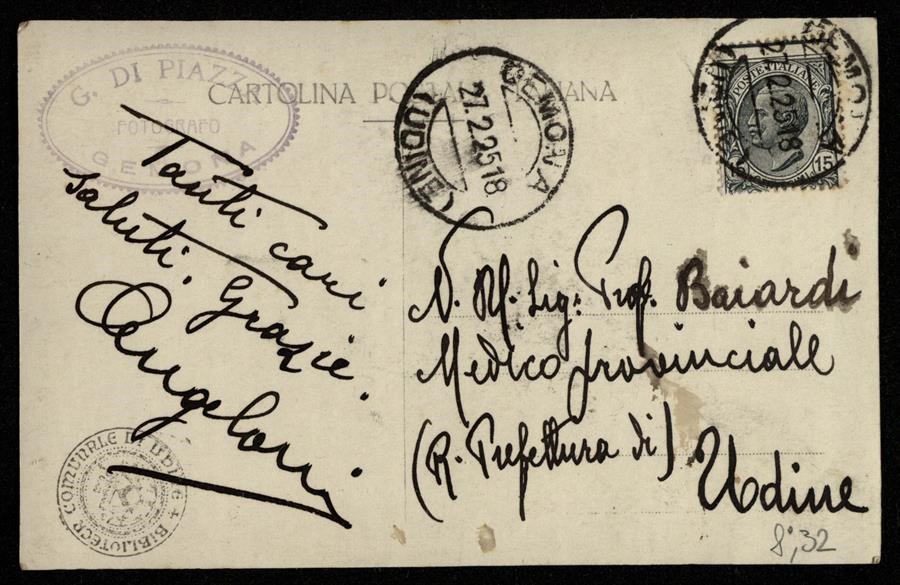 G. DI PIAZZ
FOTOGRAFO
GEMONA
CARTOLINA POSTALE ITALIANA
GEMONA
27.2.25 18
(UDINE)
GEMONA
27.2.25 18
POSTE ITALIANE
15
Tanti cari
saluti. Grazie.
Angeloni
N. Sig. Prof. Baiardi
Medico provinciale
(R. Prefettura di)
Udine
BIBLIOTECA COMUNALE DI UDINE
8°, 32